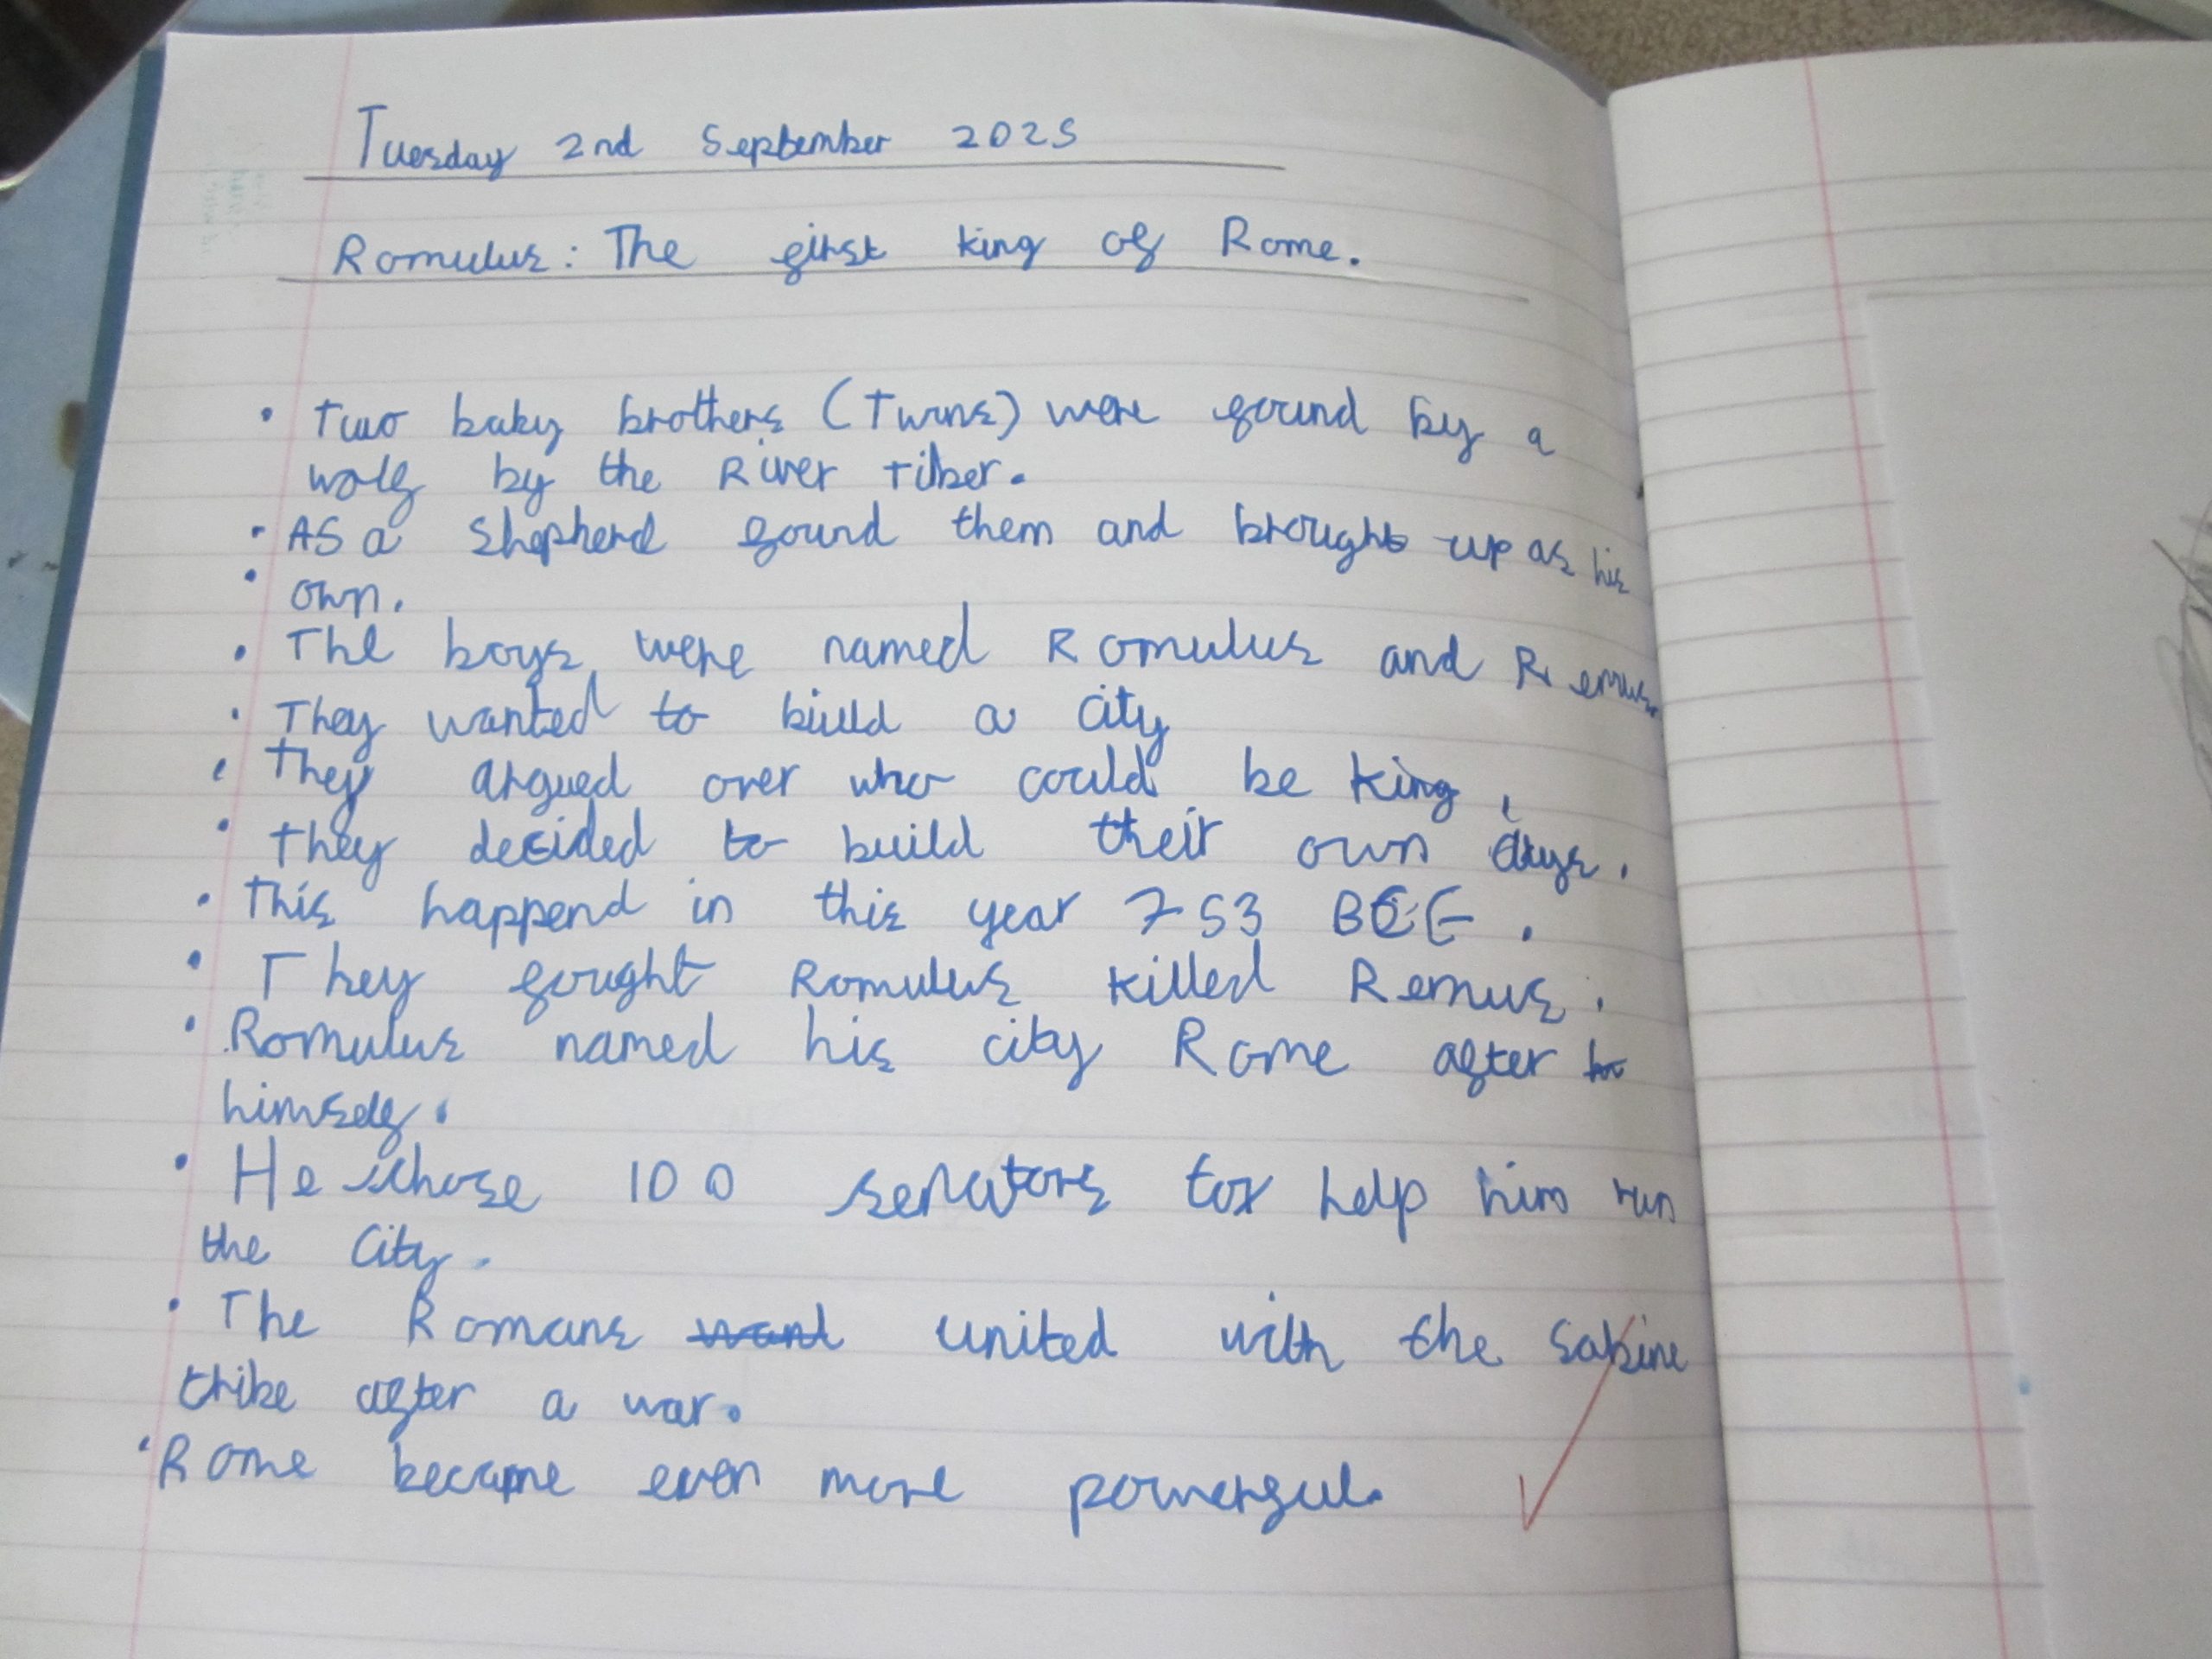 Tuesday 2nd September 2025
Romulus: The first king of Rome.
• Two baby brothers (Twins) were found by a
wolf by the River Tiber.
• AS a shepherd found them and brought up as his
• own.
• The boys were named Romulus and Remus.
• They wanted to build a city
• They argued over who could be king.
• they decided to build their own
• This happend in this year 753 BCE.
• They fought Romulus killed Remus.
• Romulus named his city Rome after
himself.
• He chose 100 senators to help him run
the City.
• The Romans want united with the Sabine
tribe after a war.
• Rome became even more powerful.